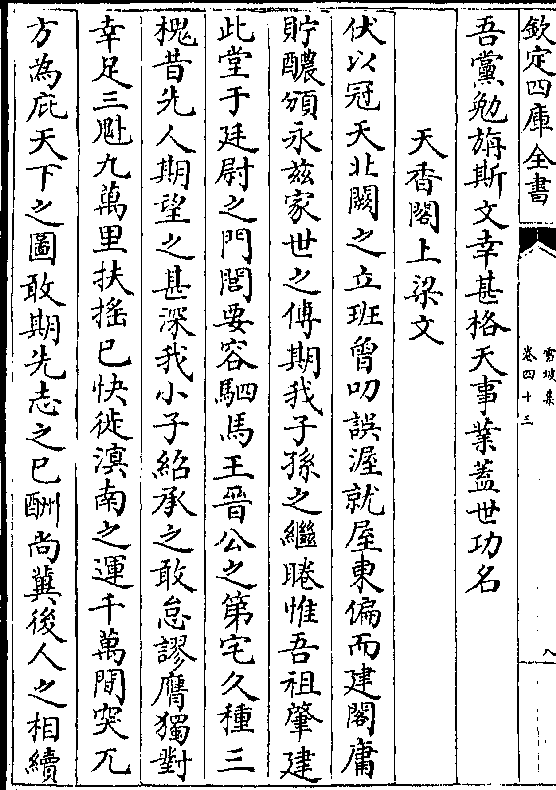 欽定四庫全書
雪坡集
卷四十三
八
吾黨勉旃斯文幸甚格天事業蓋世功名
天香閣上梁文
伏以冠天北闕之立班曾叨誤渥就屋東偏而建閣庸
貯醲頒永兹家世之傳期我子孫之繼睠惟吾祖肇建
此堂于廷尉之門閭要容駟馬王晉公之第宅久種三
槐昔先人期望之甚深我小子紹承之敢怠謬膺獨對
幸足三題九萬里扶揺已快徙溟南之運千萬間突兀
方為庇天下之圖敢期先志之已酬尚冀後人之相續